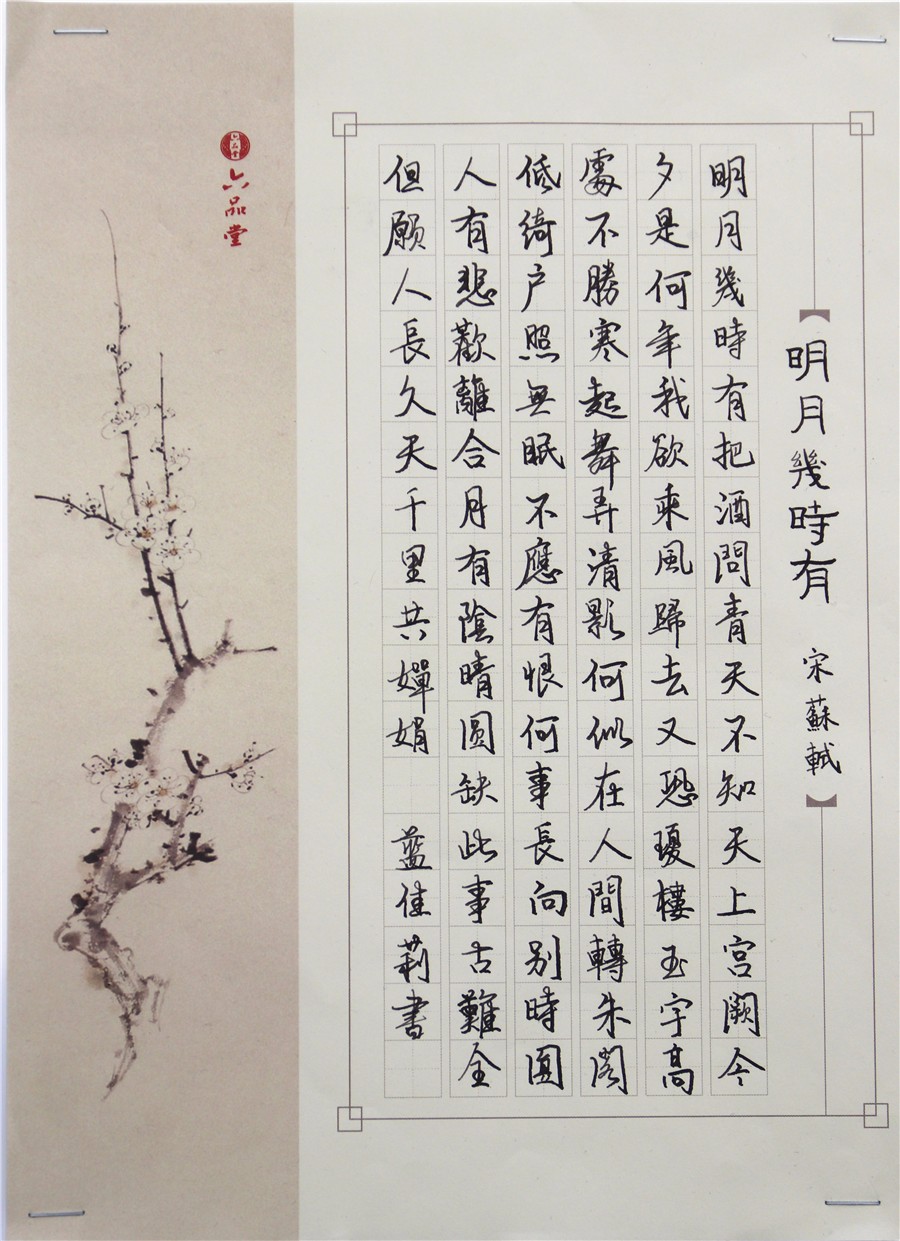 明月幾時有 宋 蘇軾
明月幾時有把酒問青天不知天上宫闕今
夕是何年我欲乘風歸去又恐瓊樓玉宇高
處不勝寒起舞弄清影何似在人間轉朱閣
低綺户照無眠不應有恨何事長向别時圓
人有悲歡離合月有陰晴圓缺此事古難全
但願人長久天千里共嬋娟 藍佳莉書
六品堂
六品堂